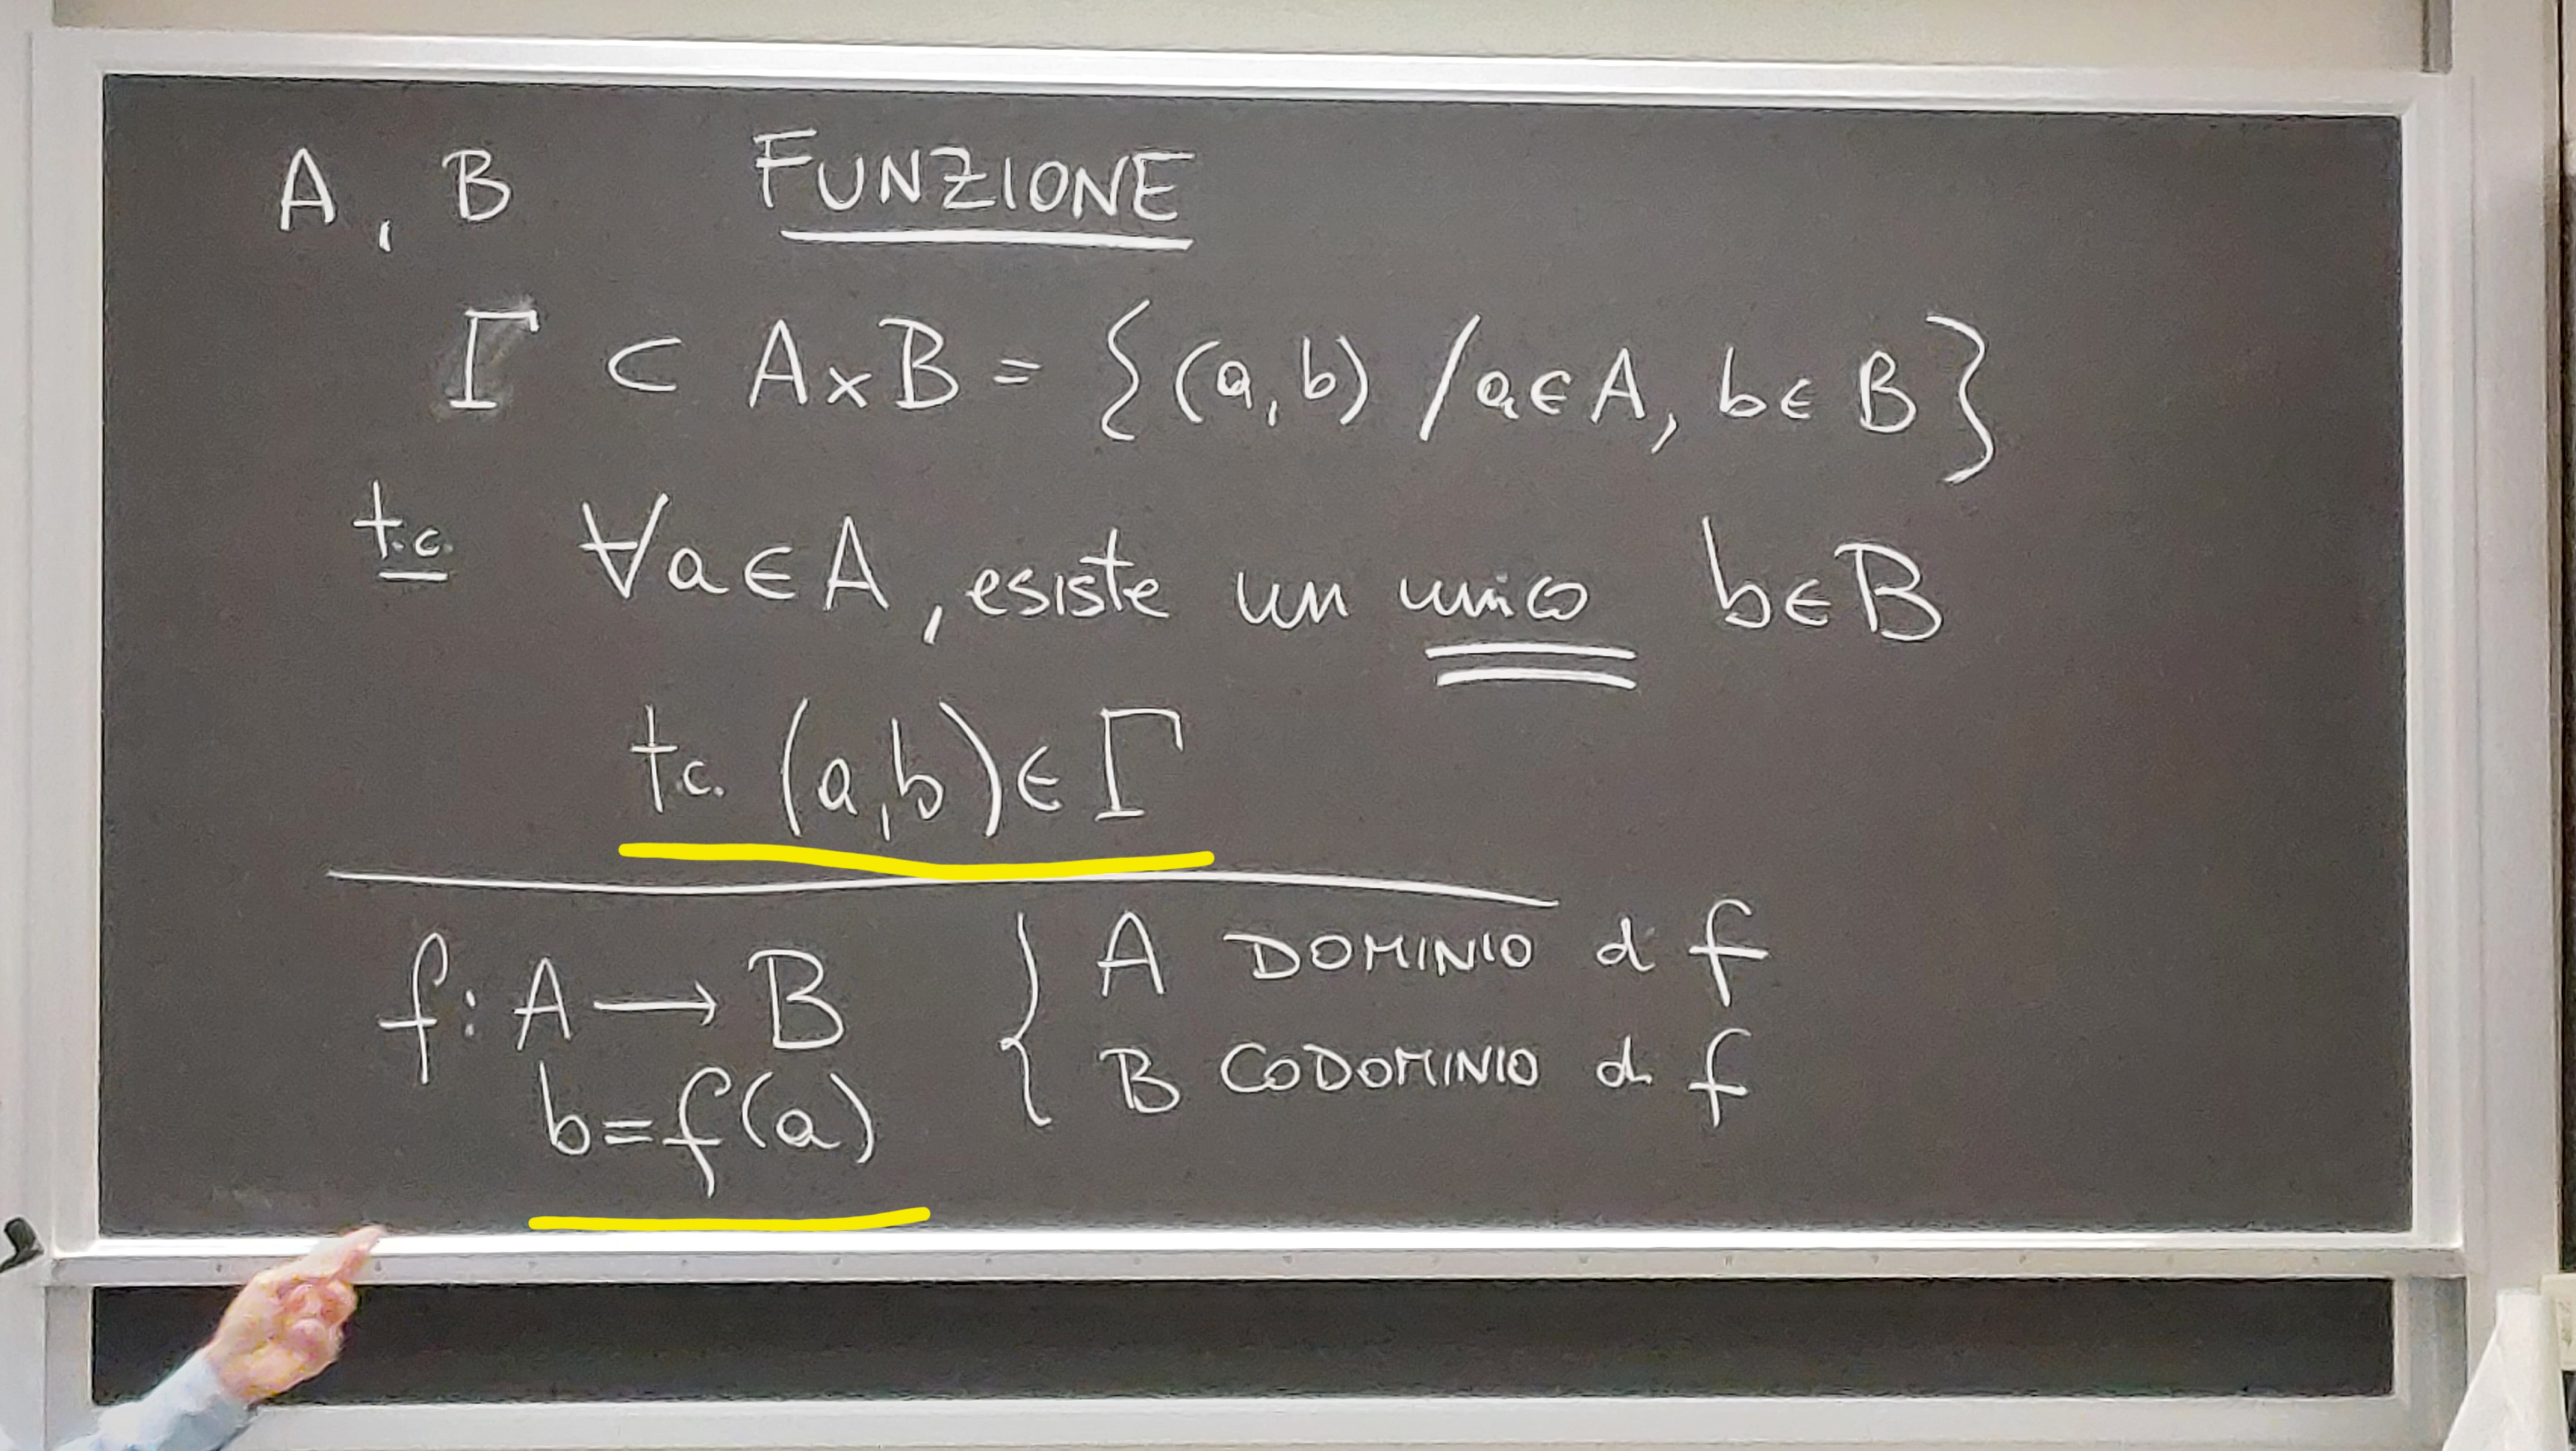 A, B FUNZIONE
Γ ⊂ A×B = {(a,b) / a∈A, b∈B}
t.c. ∀a∈A, esiste un unico b∈B
t.c. (a,b)∈Γ
f: A → B { A DOMINIO d f
b=f(a) B CODOMINIO di f